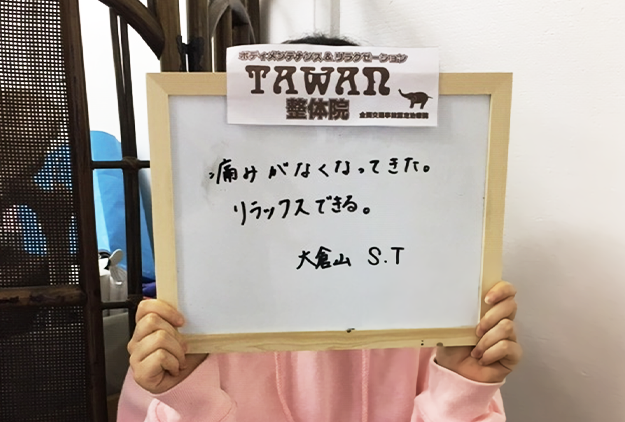 ボディメンテナンス&リラクゼーション
TAWAN
整体院
全国交通事故認定治療院
痛みがなくなってきた。
リラックスできる。
大倉山 S.T